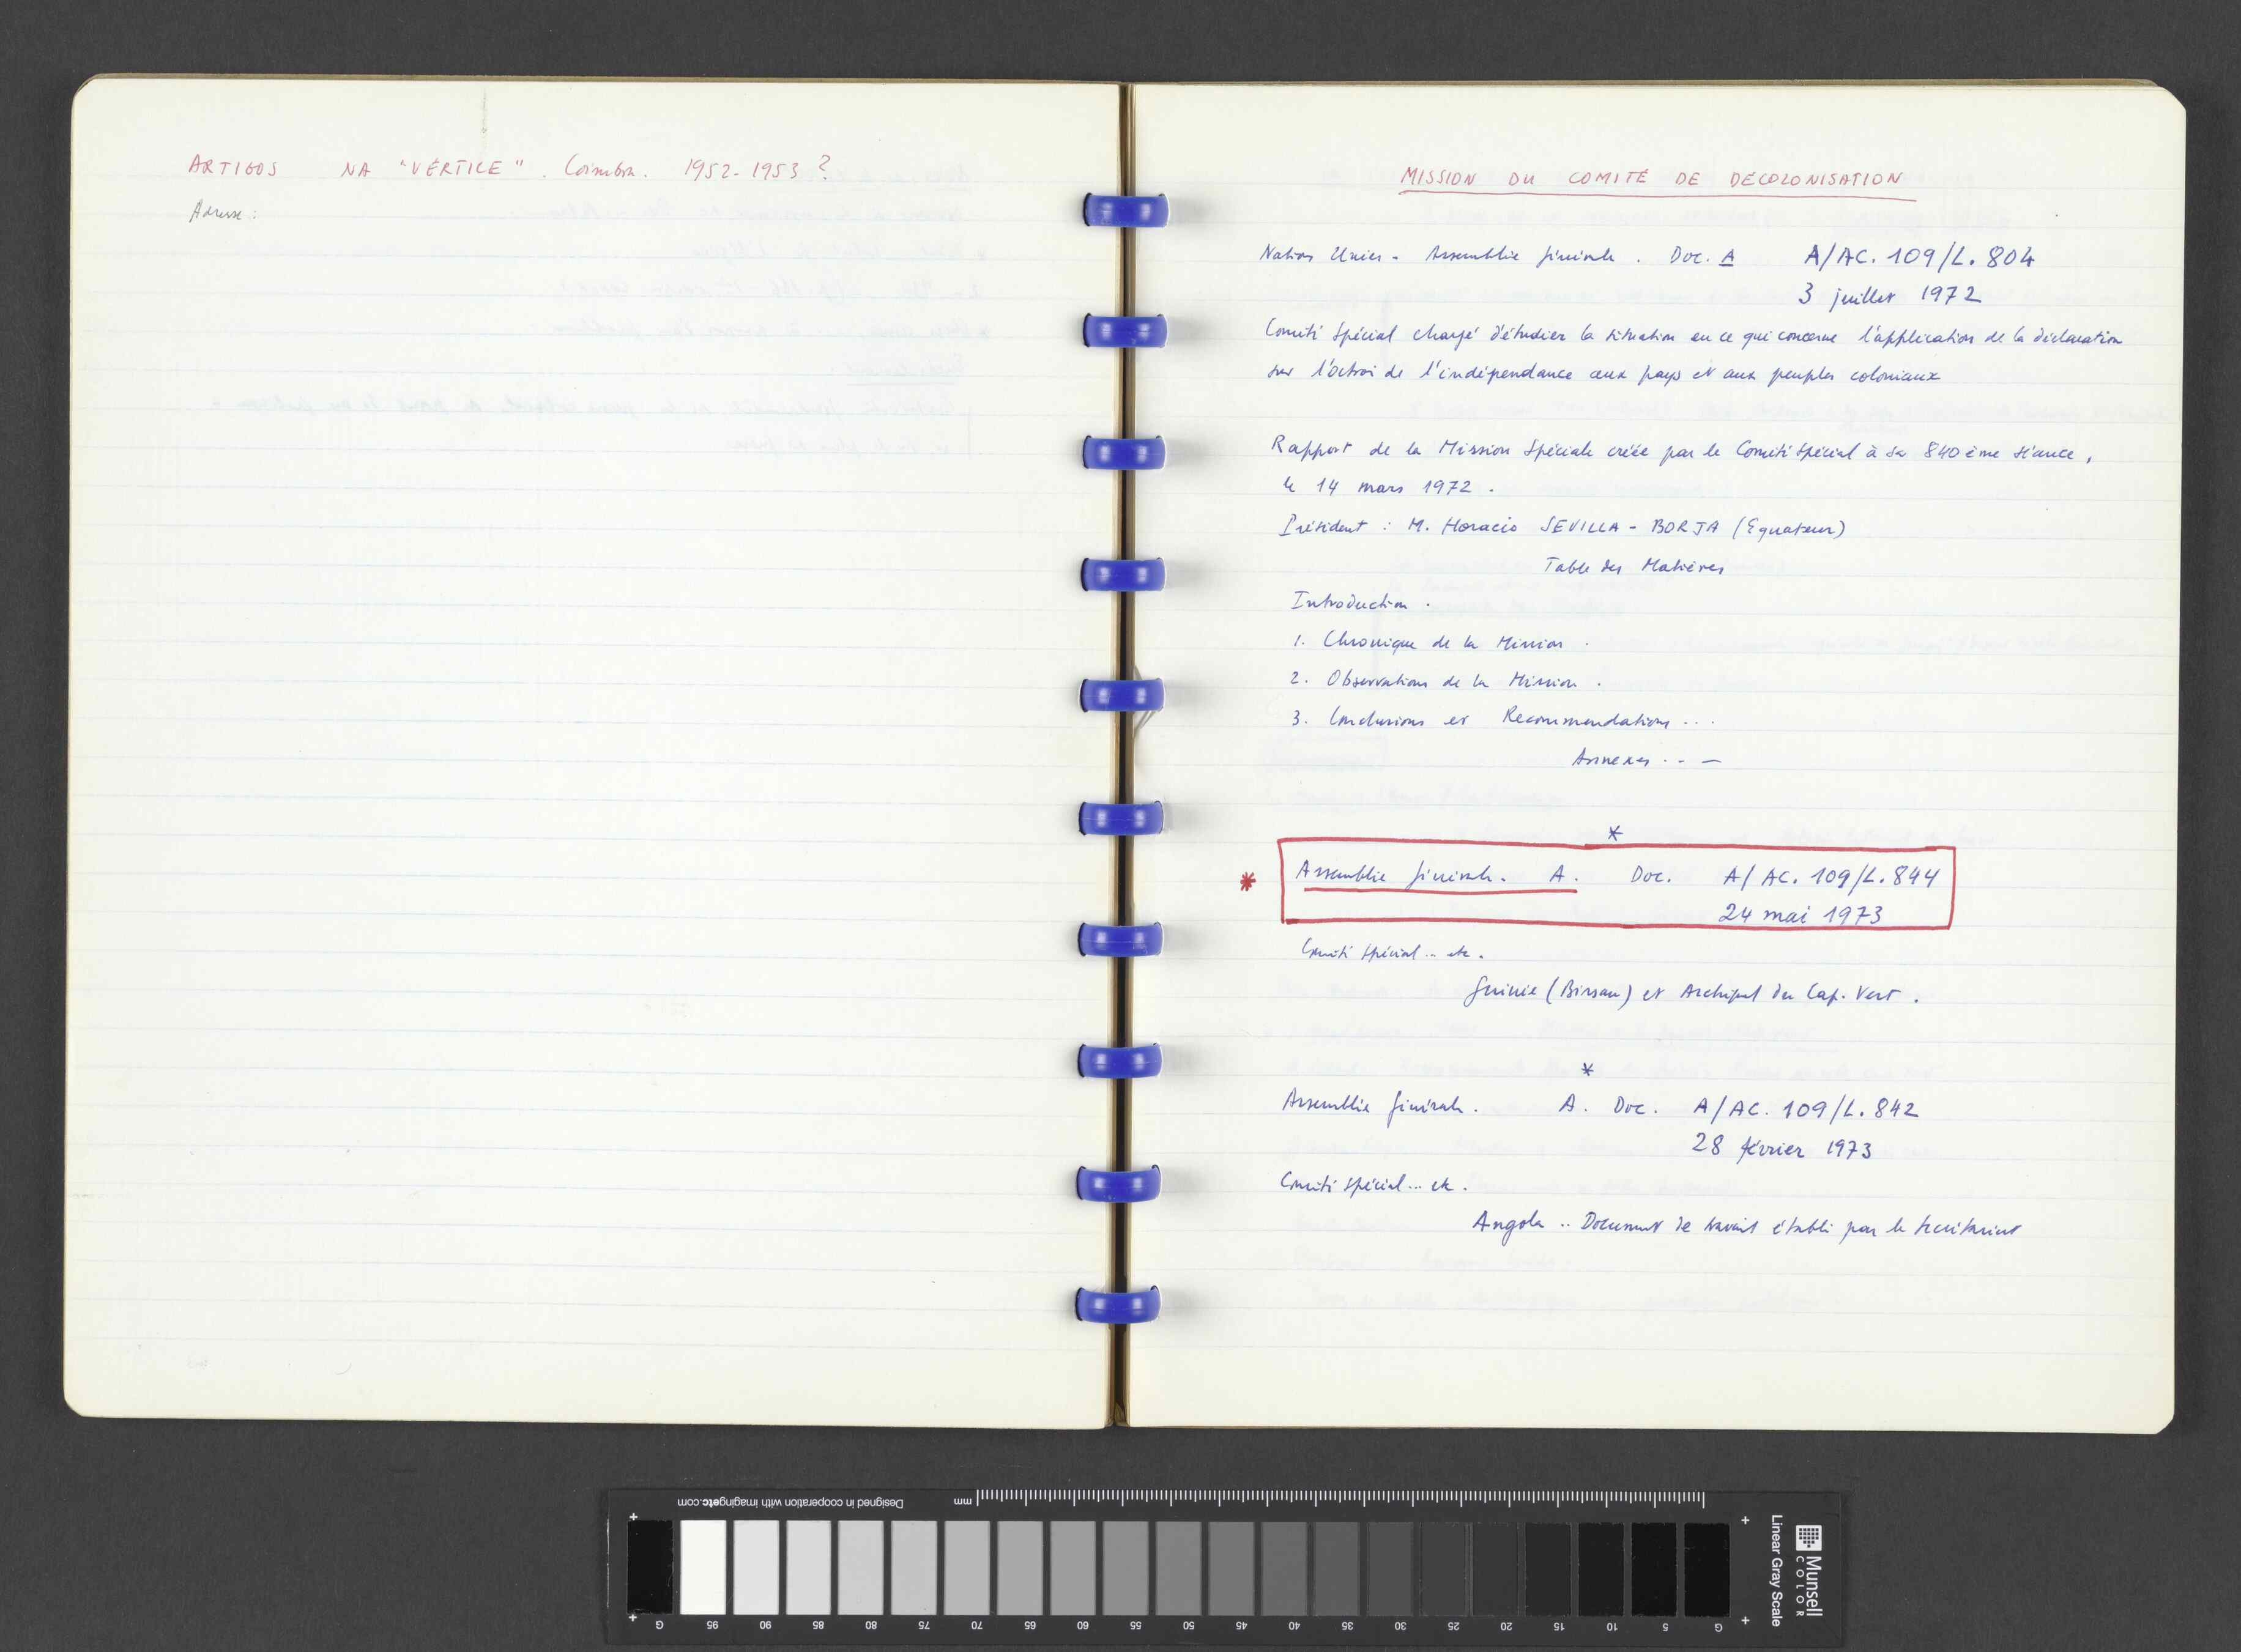 ARTIGOS NA "VÉRTICE". Coimbra. 1952-1953 ?
Adresse :
MISSION DU COMITÉ DE DÉCOLONISATION
Nations Unies - Assemblée générale. Doc. A A/AC.109/L.804
3 juillet 1972
Comité Spécial chargé d'étudier la situation en ce qui concerne l'application de la déclaration
sur l'octroi de l'indépendance aux pays et aux peuples coloniaux
Rapport de la Mission Spéciale créée par le Comité Spécial à sa 840ème séance,
le 14 mars 1972.
Président : M. Horacio SEVILLA-BORJA (Equateur)
Table des Matières
Introduction.
1. Chronique de la Mission.
2. Observations de la Mission.
3. Conclusions et Recommendations...
Annexes . - —
*
* Assemblée générale. A. Doc. A/AC.109/L.844
24 mai 1973
Comité Spécial... etc.
Guinée (Bissau) et Archipel du Cap. Vert.
*
Assemblée générale. A. Doc. A/AC.109/L.842
28 février 1973
Comité Spécial... etc.
Angola .. Document de travail établi par le secrétariat
Designed in cooperation with imagingetc.com
mm
G 95 90 85 80 75 70 65 60 55 50 45 40 35 30 25 20 15 10 5 G
Linear Gray Scale
Munsell
COLOR